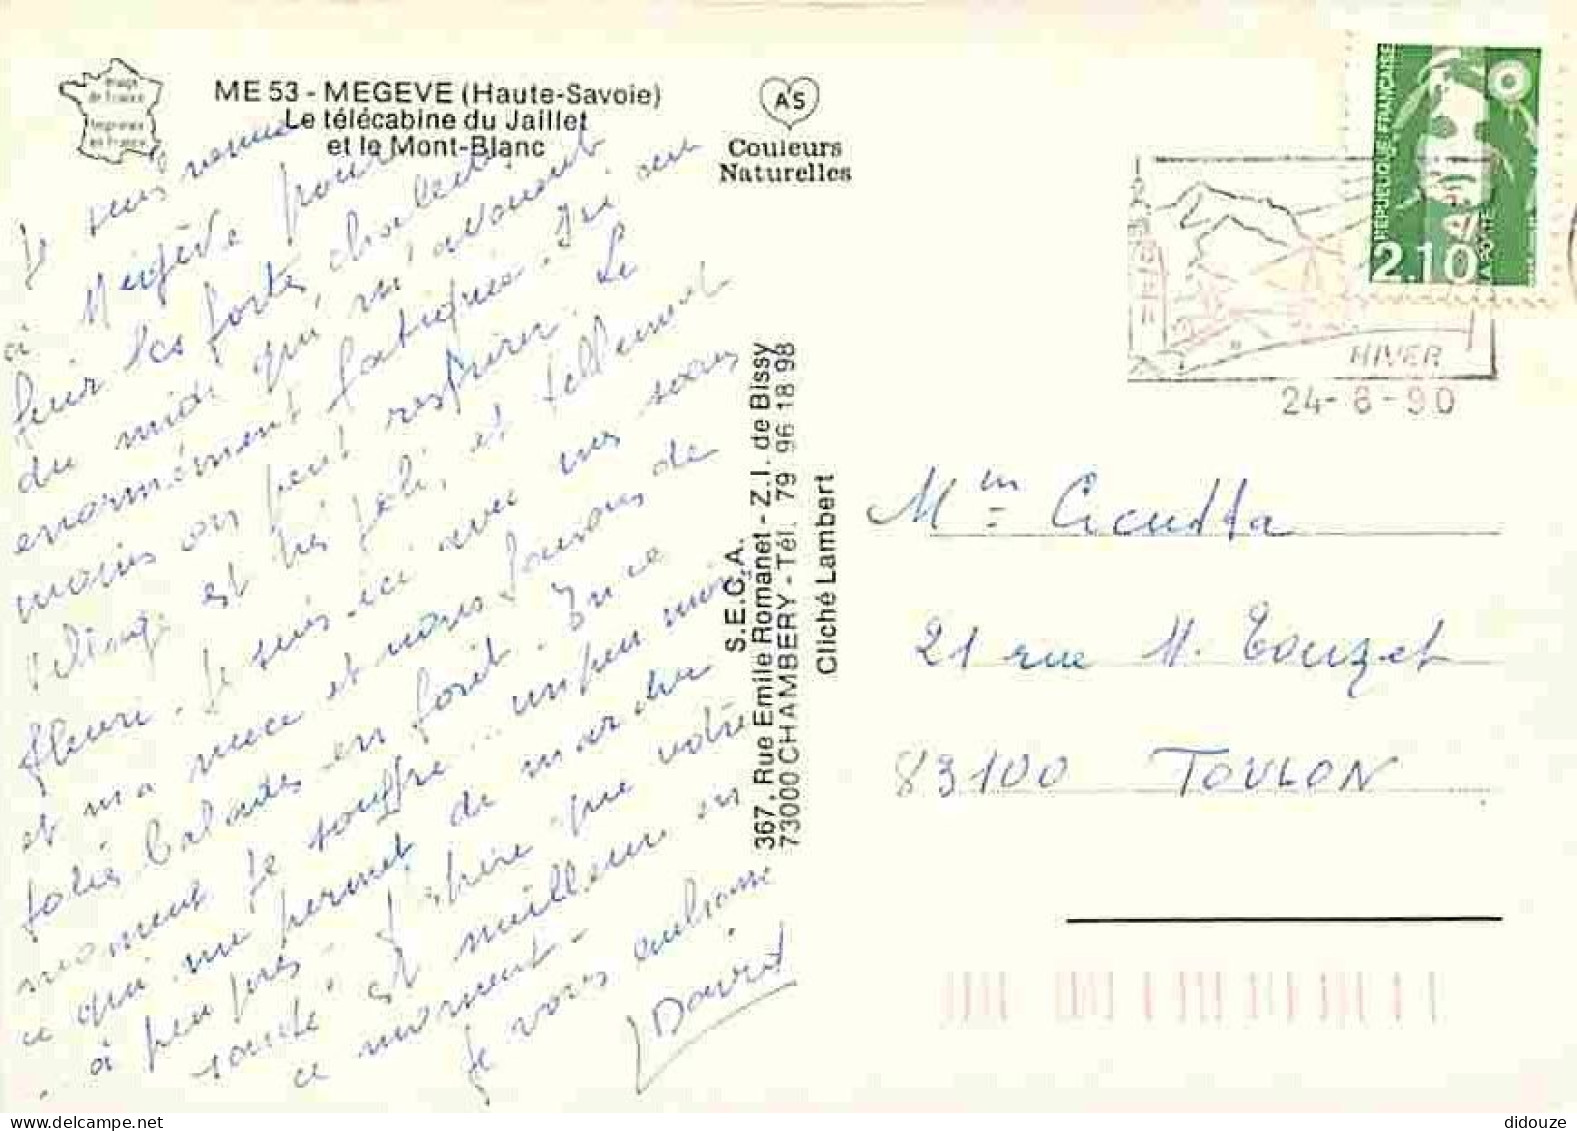 Image
de France
Imprimée
en France
ME 53 - MEGEVE (Haute-Savoie)
Le télécabine du Jaillet
et le Mont-Blanc
AS
Couleurs
Naturelles
REPUBLIQUE FRANÇAISE
2,10
LA POSTE
HIVER
24-8-90
Je suis venue
à Megève pour
fuir les fortes chaleurs
du midi qui m'avaient
enormément fatiguée. Ici au
moins on peut respirer. Le
village est très joli, et tellement
fleuri. Je suis ici avec mes sœurs
et ma nièce et nous faisons de
jolies balades en forêt. En ce
moment je souffre un peu moins
ce qui me permet de marcher
à peu près. J'espère que votre
santé est meilleure en
ce moment.
Je vous embrasse
David
S.E.C.A.
367, Rue Emile Romanet - Z.I. de Bissy
73000 CHAMBERY - Tél. 79 96 18 98
Cliché Lambert
Mm Cicutta
21 rue M. Touzet
83100 TOULON
didouze